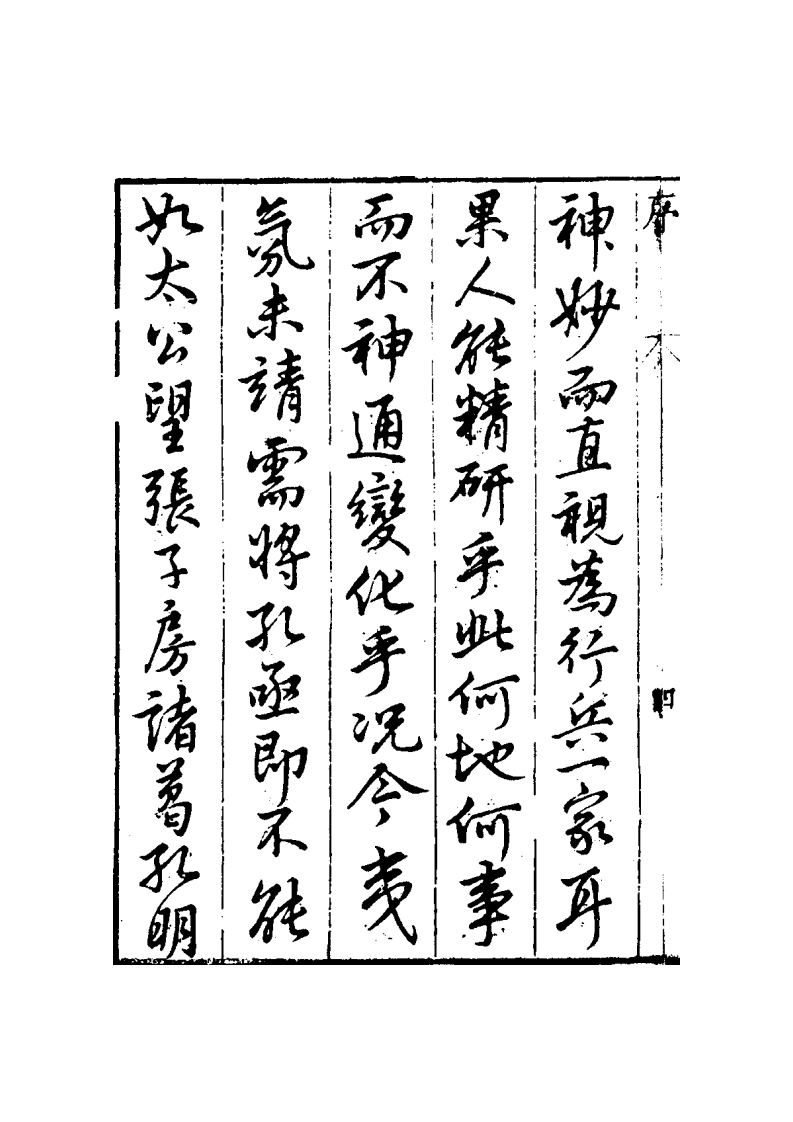 序
四
神妙而直視為行兵一家耳
果人能精研乎此何地何事
而不神通變化乎况今夷
氛未靖需將孔亟即不能
如太公望張子房諸葛孔明